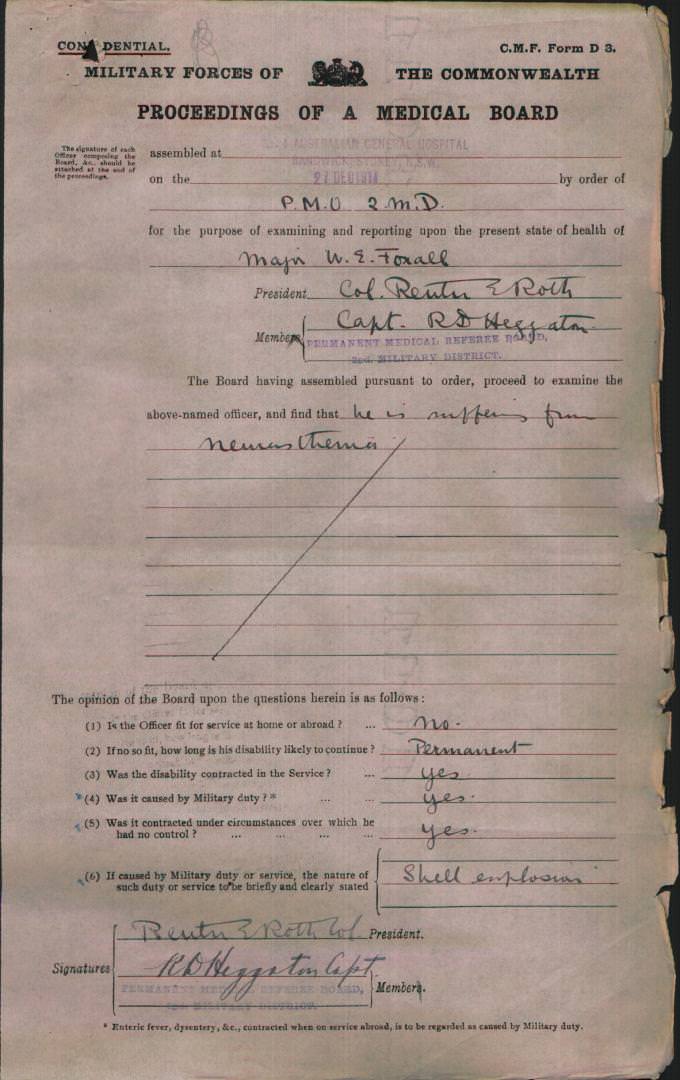 CONFIDENTIAL.
C.M.F. Form D 3.
MILITARY FORCES OF THE COMMONWEALTH
PROCEEDINGS OF A MEDICAL BOARD
The signature of each
Officer composing the
Board, &c., should be
attached at the end of
the proceedings.
4 AUSTRALIAN GENERAL HOSPITAL
assembled at
RANDWICK, SYDNEY, N.S.W.
on the 27 DEC by order of
P.M.O 2 M.D.
for the purpose of examining and reporting upon the present state of health of
Major W. E. Foxall
President Col. Reuter E Roth
Members Capt. R D Heggaton
PERMANENT MEDICAL REFEREE BOARD,
2nd. MILITARY DISTRICT.
The Board having assembled pursuant to order, proceed to examine the
above-named officer, and find that he is suffering from
neurasthenia
The opinion of the Board upon the questions herein is as follows:
(1) Is the Officer fit for service at home or abroad? ... No.
(2) If no so fit, how long is his disability likely to continue? Permanent
(3) Was the disability contracted in the Service? ... yes.
*(4) Was it caused by Military duty?* ... ... yes.
(5) Was it contracted under circumstances over which he
had no control? ... ... ... ... yes.
(6) If caused by Military duty or service, the nature of
such duty or service to be briefly and clearly stated
Shell explosion
Reuter E Roth Col. President.
Signatures
R D Heggaton Capt.
PERMANENT MEDICAL REFEREE BOARD, Members.
2nd MILITARY DISTRICT.
* Enteric fever, dysentery, &c., contracted when on service abroad, is to be regarded as caused by Military duty.